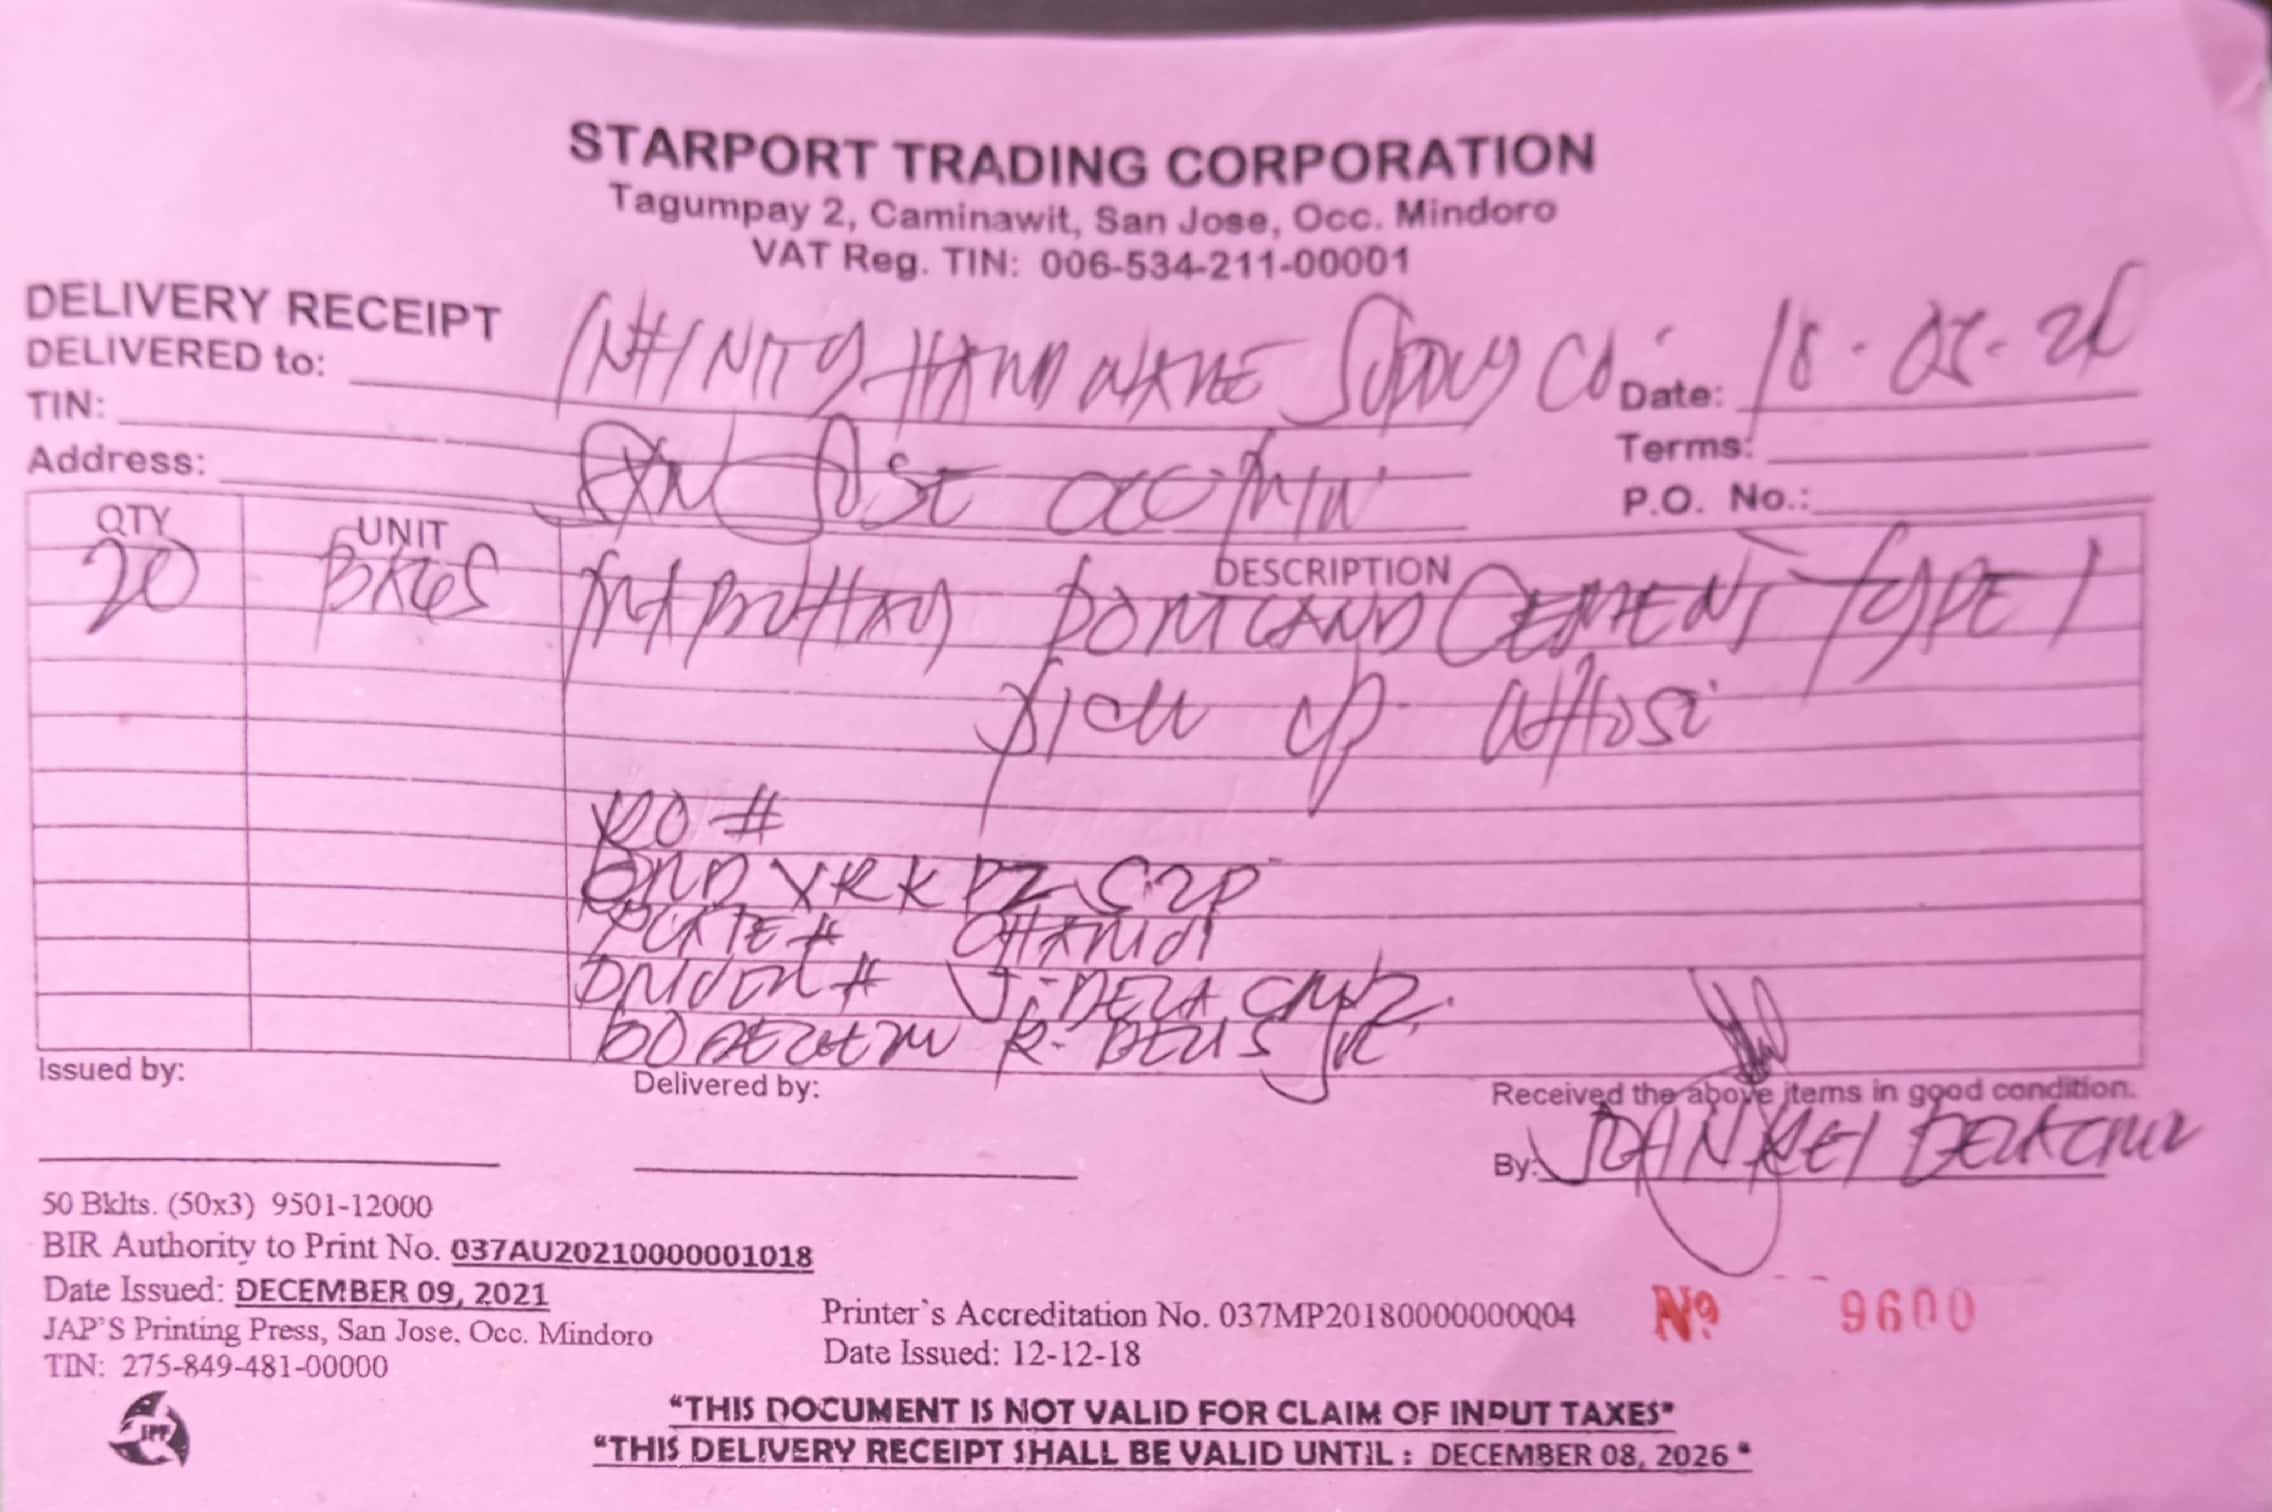 STARPORT TRADING CORPORATION
Tagumpay 2, Caminawit, San Jose, Occ. Mindoro
VAT Reg. TIN: 006-534-211-00001
DELIVERY RECEIPT
DELIVERED to: INFINITY HARDWARE SUPPLY CO. Date:
TIN: Terms:
Address: SAN JOSE OCC. MIN P.O. No.:
QTY UNIT DESCRIPTION
20 BAGS PORTLAND CEMENT TYPE 1
PICK UP
#
PLATE #
DRIVER # J. DELA CRUZ
Issued by: Delivered by: Received the above items in good condition.
By: DELA CRUZ
50 Bklts. (50x3) 9501-12000
BIR Authority to Print No. 037AU20210000001018
Date Issued: DECEMBER 09, 2021
JAP'S Printing Press, San Jose, Occ. Mindoro
TIN: 275-849-481-00000
Printer`s Accreditation No. 037MP20180000000004
Date Issued: 12-12-18
Nº 9600
JPP
"THIS DOCUMENT IS NOT VALID FOR CLAIM OF INPUT TAXES"
"THIS DELIVERY RECEIPT SHALL BE VALID UNTIL : DECEMBER 08, 2026 "